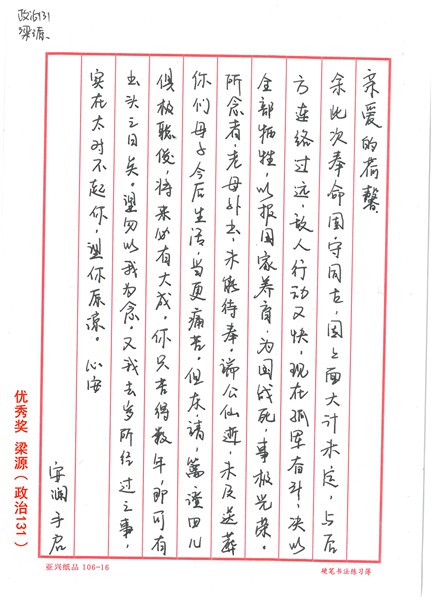 政治131
梁源
亲爱的荷馨
余此次奉命固守同古，因上面大计未定，与后
方连络过远，敌人行动又快，现在孤军奋斗，决以
全部牺牲，以报国家养育，为国战死，事极光荣。
所念者，老母外出，未能侍奉。端公仙逝，未及送葬
你们母子今后生活，当更痛苦。但东、靖、篱、澄四儿
俱极聪俊，将来必有大成。你只苦得数年，即可有
出头之日矣。望勿以我为念。又我去岁所经过之事，
实在太对不起你，望你原谅。心安
安澜手启
优秀奖 梁源（政治131）
亚兴纸品 106-16
硬笔书法练习簿